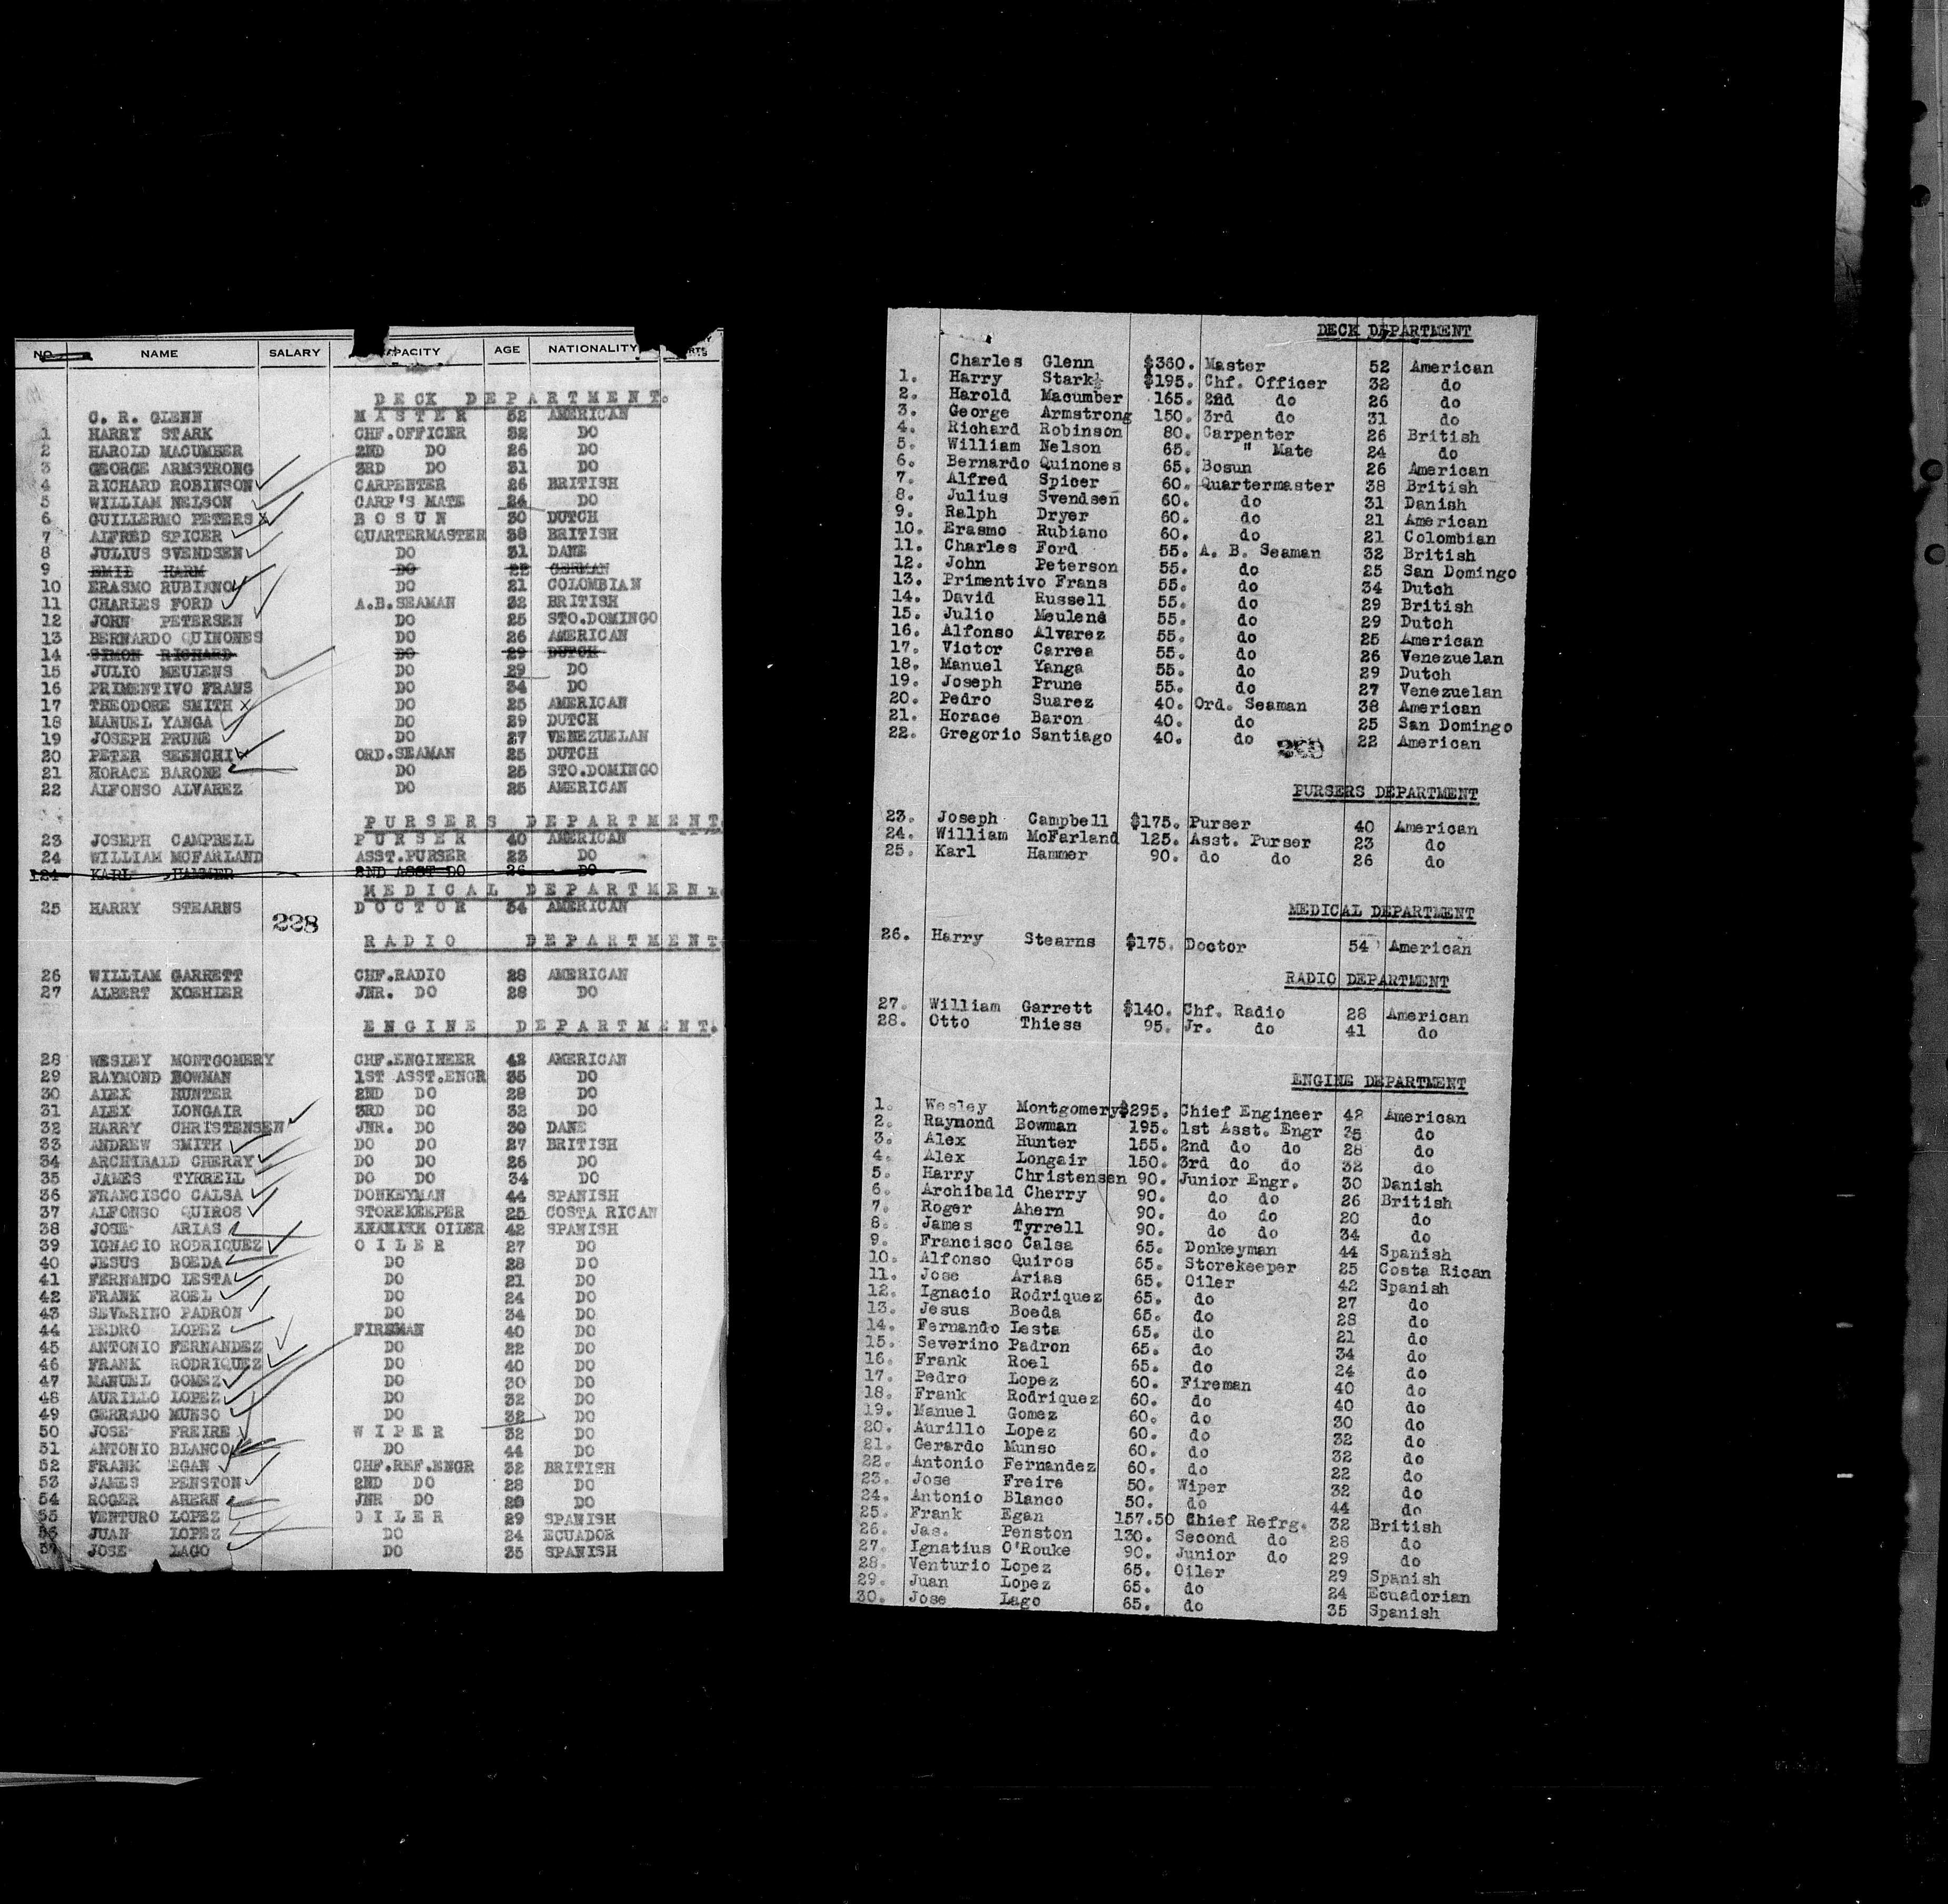 NO. NAME SALARY CAPACITY AGE NATIONALITY
DECK DEPARTMENT.
C. R. GLENN MASTER 52 AMERICAN
1 HARRY STARK CHF.OFFICER 32 DO
2 HAROLD MACUMBER 2ND DO 26 DO
3 GEORGE ARMSTRONG 3RD DO 31 DO
4 RICHARD ROBINSON CARPENTER 26 BRITISH
5 WILLIAM NELSON CARP'S MATE 24 DO
6 GUILLERMO PETERS BOSUN 30 DUTCH
7 ALFRED SPICER QUARTERMASTER 38 BRITISH
8 JULIUS SVENDSEN DO 31 DANE
9 EMIL HARM DO 22 GERMAN
10 ERASMO RUBIANO DO 21 COLOMBIAN
11 CHARLES FORD A.B.SEAMAN 32 BRITISH
12 JOHN PETERSEN DO 25 STO.DOMINGO
13 BERNARDO QUINONES DO 26 AMERICAN
14 SIMON RICHARD DO 29 DUTCH
15 JULIO MEULENS DO 29 DO
16 PRIMENTIVO FRANS DO 34 DO
17 THEODORE SMITH DO 25 AMERICAN
18 MANUEL YANGA DO 29 DUTCH
19 JOSEPH PRUNE DO 27 VENEZUELAN
20 PETER SEENCHI ORD.SEAMAN 25 DUTCH
21 HORACE BARONE DO 25 STO.DOMINGO
22 ALFONSO ALVAREZ DO 25 AMERICAN
PURSERS DEPARTMENT.
23 JOSEPH CAMPBELL PURSER 40 AMERICAN
24 WILLIAM MCFARLAND ASST.PURSER 23 DO
124 KARL HAMMER 2ND ASST DO 26 DO
MEDICAL DEPARTMENT.
25 HARRY STEARNS DOCTOR 54 AMERICAN
228
RADIO DEPARTMENT
26 WILLIAM GARRETT CHF.RADIO 28 AMERICAN
27 ALBERT KOEHLER JNR. DO 28 DO
ENGINE DEPARTMENT.
28 WESLEY MONTGOMERY CHF.ENGINEER 42 AMERICAN
29 RAYMOND BOWMAN 1ST ASST.ENGR 35 DO
30 ALEX HUNTER 2ND DO 28 DO
31 ALEX LONGAIR 3RD DO 32 DO
32 HARRY CHRISTENSEN JNR. DO 30 DANE
33 ANDREW SMITH DO DO 27 BRITISH
34 ARCHIBALD CHERRY DO DO 26 DO
35 JAMES TYRRELL DO DO 34 DO
36 FRANCISCO CALSA DONKEYMAN 44 SPANISH
37 ALFONSO QUIROS STOREKEEPER 25 COSTA RICAN
38 JOSE ARIAS OILER 42 SPANISH
39 IGNACIO RODRIQUEZ OILER 27 DO
40 JESUS BOEDA DO 28 DO
41 FERNANDO LESTA DO 21 DO
42 FRANK ROEL DO 24 DO
43 SEVERINO PADRON DO 34 DO
44 PEDRO LOPEZ FIREMAN 40 DO
45 ANTONIO FERNANDEZ DO 22 DO
46 FRANK RODRIQUEZ DO 40 DO
47 MANUEL GOMEZ DO 30 DO
48 AURILLO LOPEZ DO 32 DO
49 GERRADO MUNSO DO 32 DO
50 JOSE FREIRE WIPER 32 DO
51 ANTONIO BLANCO DO 44 DO
52 FRANK EGAN CHF.REF.ENGR 32 BRITISH
53 JAMES PENSTON 2ND DO 28 DO
54 ROGER AHERN JNR DO 20 DO
55 VENTURO LOPEZ OILER 29 SPANISH
56 JUAN LOPEZ DO 24 ECUADOR
57 JOSE LAGO DO 35 SPANISH
DECK DEPARTMENT
Charles Glenn $360. Master 52 American
1. Harry Stark $195. Chf. Officer 32 do
2. Harold Macumber 165. 2nd do 26 do
3. George Armstrong 150. 3rd do 31 do
4. Richard Robinson 80. Carpenter 26 British
5. William Nelson 65. " Mate 24 do
6. Bernardo Quinones 65. Bosun 26 American
7. Alfred Spicer 60. Quartermaster 38 British
8. Julius Svendsen 60. do 31 Danish
9. Ralph Dryer 60. do 21 American
10. Erasmo Rubiano 60. do 21 Colombian
11. Charles Ford 55. A. B. Seaman 32 British
12. John Peterson 55. do 25 San Domingo
13. Primentivo Frans 55. do 34 Dutch
14. David Russell 55. do 29 British
15. Julio Meulens 55. do 29 Dutch
16. Alfonso Alvarez 55. do 25 American
17. Victor Carrea 55. do 26 Venezuelan
18. Manuel Yanga 55. do 29 Dutch
19. Joseph Prune 55. do 27 Venezuelan
20. Pedro Suarez 40. Ord. Seaman 38 American
21. Horace Baron 40. do 25 San Domingo
22. Gregorio Santiago 40. do 22 American
PURSERS DEPARTMENT
23. Joseph Campbell $175. Purser 40 American
24. William McFarland 125. Asst. Purser 23 do
25. Karl Hammer 90. do do 26 do
MEDICAL DEPARTMENT
26. Harry Stearns $175. Doctor 54 American
RADIO DEPARTMENT
27. William Garrett $140. Chf. Radio 28 American
28. Otto Thiess 95. Jr. do 41 do
ENGINE DEPARTMENT
1. Wesley Montgomery $295. Chief Engineer 42 American
2. Raymond Bowman 195. 1st Asst. Engr 35 do
3. Alex Hunter 155. 2nd do do 28 do
4. Alex Longair 150. 3rd do do 32 do
5. Harry Christensen 90. Junior Engr. 30 Danish
6. Archibald Cherry 90. do do 26 British
7. Roger Ahern 90. do do 20 do
8. James Tyrrell 90. do do 34 do
9. Francisco Calsa 65. Donkeyman 44 Spanish
10. Alfonso Quiros 65. Storekeeper 25 Costa Rican
11. Jose Arias 65. Oiler 42 Spanish
12. Ignacio Rodriquez 65. do 27 do
13. Jesus Boeda 65. do 28 do
14. Fernando Lesta 65. do 21 do
15. Severino Padron 65. do 34 do
16. Frank Roel 65. do 24 do
17. Pedro Lopez 60. Fireman 40 do
18. Frank Rodriquez 60. do 40 do
19. Manuel Gomez 60. do 30 do
20. Aurillo Lopez 60. do 32 do
21. Gerardo Munso 60. do 32 do
22. Antonio Fernandez 60. do 22 do
23. Jose Freire 50. Wiper 32 do
24. Antonio Blanco 50. do 44 do
25. Frank Egan 157.50 Chief Refrg. 32 British
26. Jas. Penston 130. Second do 28 do
27. Ignatius O'Rouke 90. Junior do 29 do
28. Venturio Lopez 65. Oiler 29 Spanish
29. Juan Lopez 65. do 24 Ecuadorian
30. Jose Lago 65. do 35 Spanish